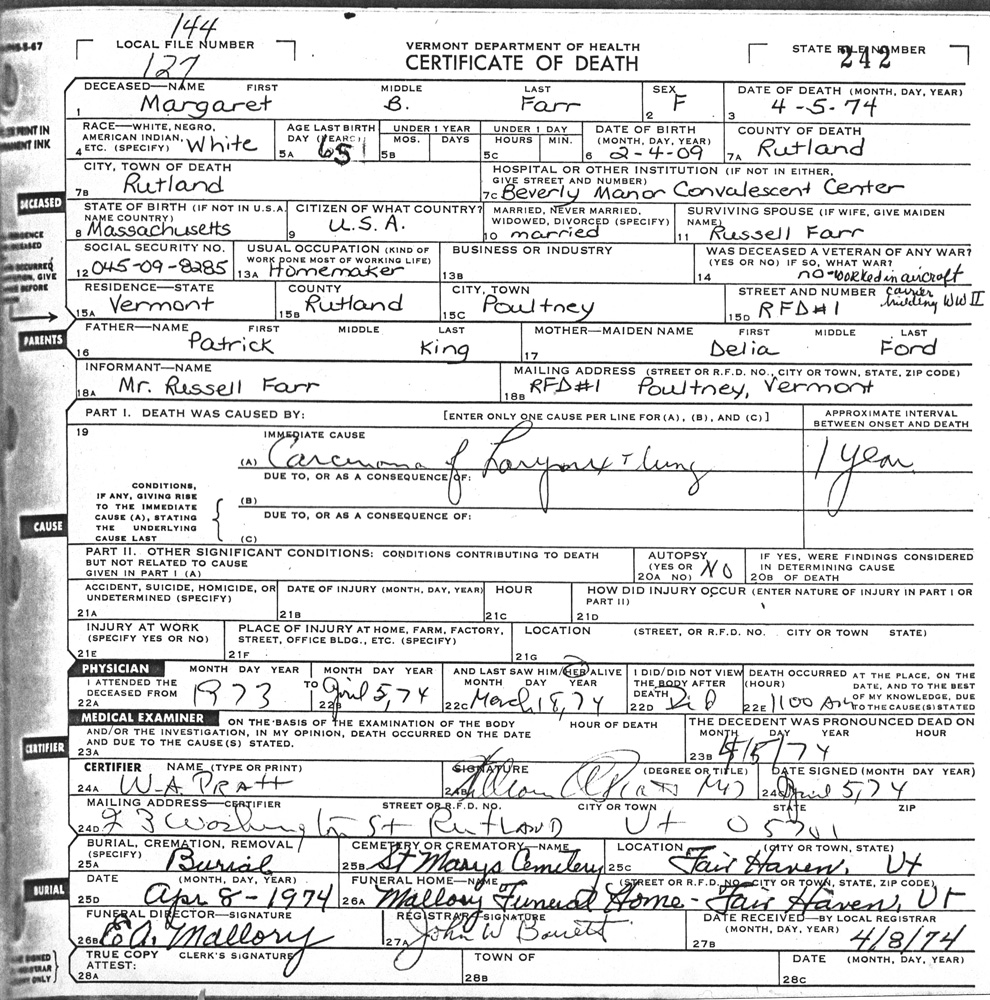 144
LOCAL FILE NUMBER
127
VERMONT DEPARTMENT OF HEALTH
CERTIFICATE OF DEATH
STATE FILE NUMBER
242
DECEASED—NAME FIRST MIDDLE LAST
1 Margaret B. Farr
SEX
2 F
DATE OF DEATH (MONTH, DAY, YEAR)
3 4-5-74
RACE—WHITE, NEGRO,
AMERICAN INDIAN,
4 ETC. (SPECIFY) White
AGE LAST BIRTH
DAY (YEARS)
5A 65
UNDER 1 YEAR
MOS. DAYS
5B
UNDER 1 DAY
HOURS MIN.
5C
DATE OF BIRTH
(MONTH, DAY, YEAR)
6 2-4-09
COUNTY OF DEATH
7A Rutland
CITY, TOWN OF DEATH
7B Rutland
HOSPITAL OR OTHER INSTITUTION (IF NOT IN EITHER,
GIVE STREET AND NUMBER)
7C Beverly Manor Convalescent Center
DECEASED
STATE OF BIRTH (IF NOT IN U.S.A.
NAME COUNTRY)
8 Massachusetts
CITIZEN OF WHAT COUNTRY?
9 U.S.A.
MARRIED, NEVER MARRIED,
WIDOWED, DIVORCED (SPECIFY)
10 married
SURVIVING SPOUSE (IF WIFE, GIVE MAIDEN
NAME)
11 Russell Farr
SOCIAL SECURITY NO.
12 045-09-8285
USUAL OCCUPATION (KIND OF
WORK DONE MOST OF WORKING LIFE)
13A Homemaker
BUSINESS OR INDUSTRY
13B
WAS DECEASED A VETERAN OF ANY WAR?
(YES OR NO) IF SO, WHAT WAR?
14 no-worked in aircraft
carrier
building WW II
RESIDENCE—STATE
15A Vermont
COUNTY
15B Rutland
CITY, TOWN
15C Poultney
STREET AND NUMBER
15D RFD#1
PARENTS
FATHER—NAME FIRST MIDDLE LAST
16 Patrick King
MOTHER—MAIDEN NAME FIRST MIDDLE LAST
17 Delia Ford
INFORMANT—NAME
18A Mr. Russell Farr
MAILING ADDRESS (STREET OR R.F.D. NO., CITY OR TOWN, STATE, ZIP CODE)
18B RFD#1 Poultney, Vermont
PART I. DEATH WAS CAUSED BY: [ENTER ONLY ONE CAUSE PER LINE FOR (A), (B), AND (C)]
APPROXIMATE INTERVAL
BETWEEN ONSET AND DEATH
19
IMMEDIATE CAUSE
(A) Carcinoma of Larynx + lung
1 year
DUE TO, OR AS A CONSEQUENCE OF:
CONDITIONS,
IF ANY, GIVING RISE
TO THE IMMEDIATE
CAUSE (A), STATING
THE UNDERLYING
CAUSE LAST
(B)
DUE TO, OR AS A CONSEQUENCE OF:
(C)
CAUSE
PART II. OTHER SIGNIFICANT CONDITIONS: CONDITIONS CONTRIBUTING TO DEATH
BUT NOT RELATED TO CAUSE
GIVEN IN PART I (A)
AUTOPSY
(YES OR
20A NO) NO
IF YES, WERE FINDINGS CONSIDERED
IN DETERMINING CAUSE
20B OF DEATH
ACCIDENT, SUICIDE, HOMICIDE, OR
UNDETERMINED (SPECIFY)
21A
DATE OF INJURY (MONTH, DAY, YEAR)
21B
HOUR
21C
HOW DID INJURY OCCUR (ENTER NATURE OF INJURY IN PART I OR
PART II)
21D
INJURY AT WORK
(SPECIFY YES OR NO)
21E
PLACE OF INJURY AT HOME, FARM, FACTORY,
STREET, OFFICE BLDG., ETC. (SPECIFY)
21F
LOCATION (STREET, OR R.F.D. NO. CITY OR TOWN STATE)
21G
PHYSICIAN
I ATTENDED THE
DECEASED FROM
22A
MONTH DAY YEAR
1973
TO
MONTH DAY YEAR
22B April 5, 74
AND LAST SAW HIM/HER ALIVE
MONTH DAY YEAR
22C March 18, 74
I DID/DID NOT VIEW
THE BODY AFTER
DEATH
22D Did
DEATH OCCURRED
(HOUR)
22E 1100 AM
AT THE PLACE, ON THE
DATE, AND TO THE BEST
OF MY KNOWLEDGE, DUE
TO THE CAUSE(S) STATED
MEDICAL EXAMINER
ON THE BASIS OF THE EXAMINATION OF THE BODY
AND/OR THE INVESTIGATION, IN MY OPINION, DEATH OCCURRED ON THE DATE
AND DUE TO THE CAUSE(S) STATED.
23A
HOUR OF DEATH
THE DECEDENT WAS PRONOUNCED DEAD ON
MONTH DAY YEAR HOUR
23B 4/5/74
CERTIFIER
CERTIFIER NAME (TYPE OR PRINT)
24A W.A PRATT
SIGNATURE (DEGREE OR TITLE)
24B William A Pratt MD
DATE SIGNED (MONTH DAY YEAR)
24C April 5, 74
MAILING ADDRESS—CERTIFIER STREET OR R.F.D. NO. CITY OR TOWN STATE ZIP
24D Washington St RUTLAND Vt 05701
BURIAL, CREMATION, REMOVAL
(SPECIFY)
25A Burial
CEMETERY OR CREMATORY—NAME
25B St Marys Cemetery
LOCATION (CITY OR TOWN, STATE)
25C Fair Haven, Vt
BURIAL
DATE (MONTH, DAY, YEAR)
25D Apr 8-1974
FUNERAL HOME—NAME (STREET OR R.F.D. NO., CITY OR TOWN, STATE, ZIP CODE)
26A Mallory Funeral Home - Fair Haven, Vt
FUNERAL DIRECTOR—SIGNATURE
26B E A. Mallory
REGISTRAR SIGNATURE
27A John W Barrett
DATE RECEIVED—BY LOCAL REGISTRAR
(MONTH, DAY, YEAR)
27B 4/8/74
TRUE COPY CLERK'S SIGNATURE
ATTEST:
28A
TOWN OF
28B
DATE (MONTH, DAY, YEAR)
28C